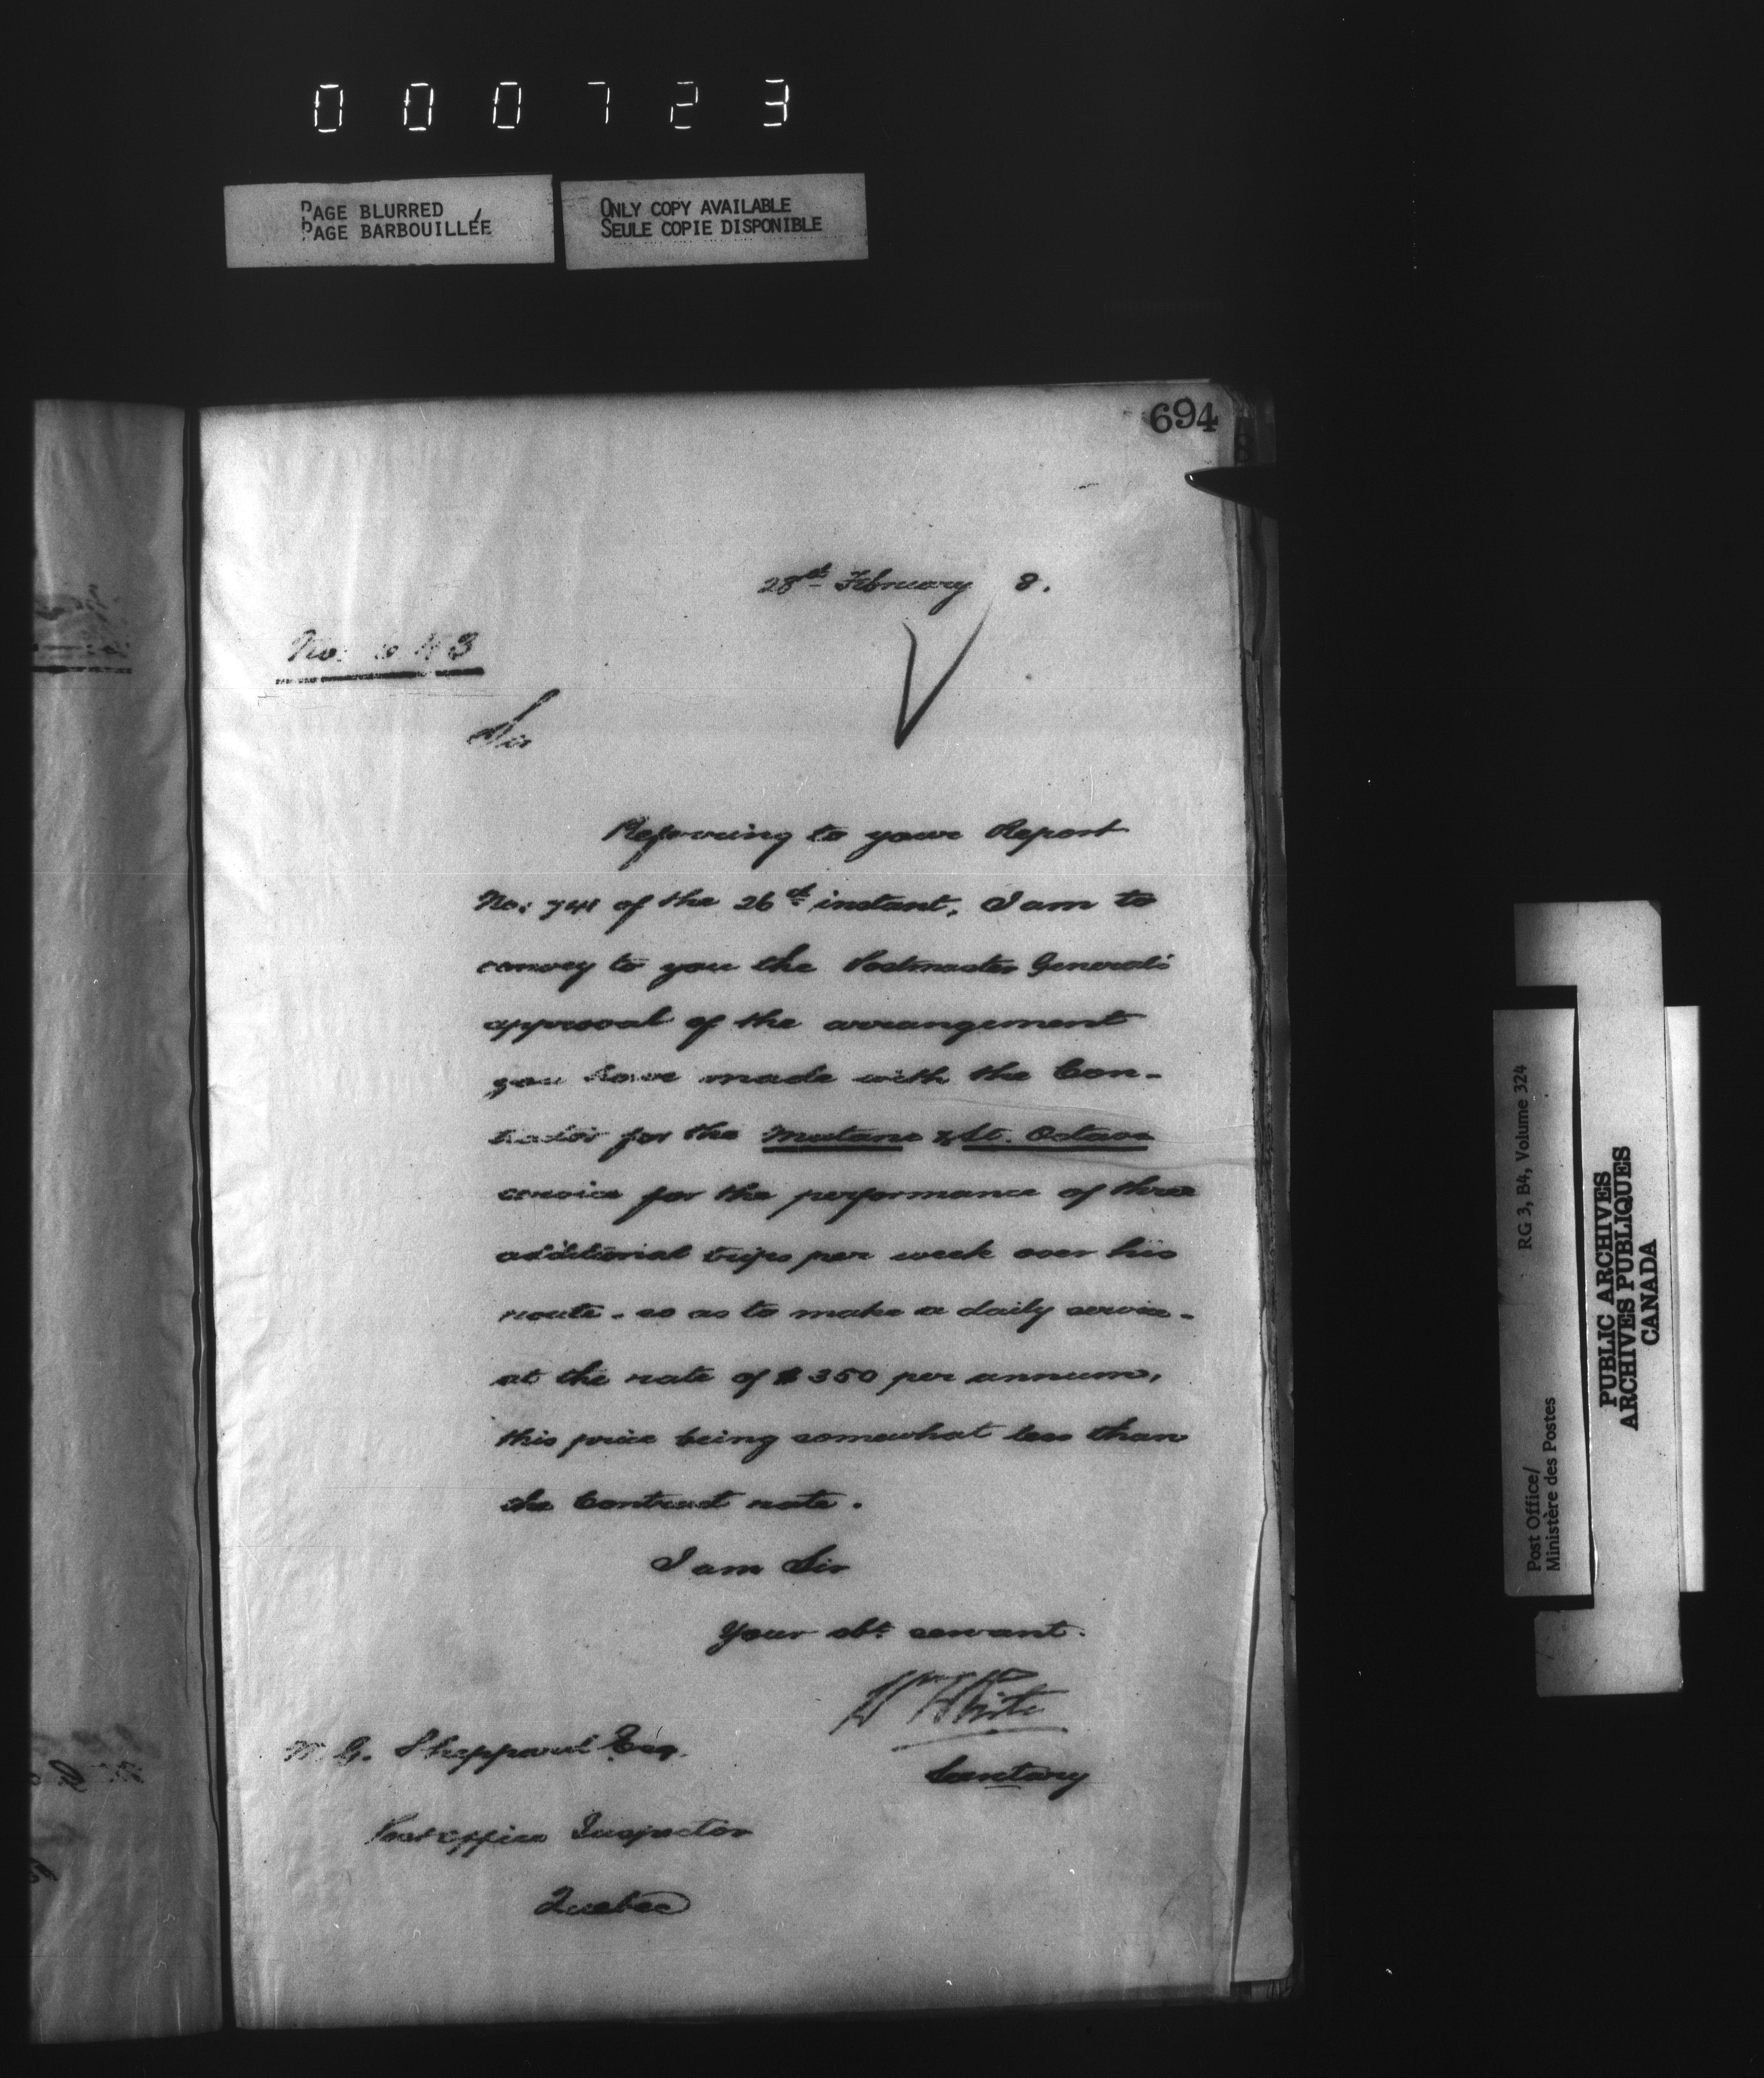 000723
PAGE BLURRED
PAGE BARBOUILLÉE
ONLY COPY AVAILABLE
SEULE COPIE DISPONIBLE
694
28th February 8.
No:
Sir
Referring to your Report
No: 741 of the 26th instant, I am to
convey to you the Postmaster General's
approval of the arrangement
you have made with the Con-
tractor for the Matane & St. Octave
service for the performance of three
additional trips per week over his
route - so as to make a daily service -
at the rate of $350 per annum,
this price being somewhat less than
the Contract rate.
I am Sir
Your obt. servant.
Wm White
Secretary
W. G. Sheppard Esq.
Post office Inspector
Quebec
Post Office/
Ministère des Postes
RG 3, B4, Volume 324
PUBLIC ARCHIVES
ARCHIVES PUBLIQUES
CANADA